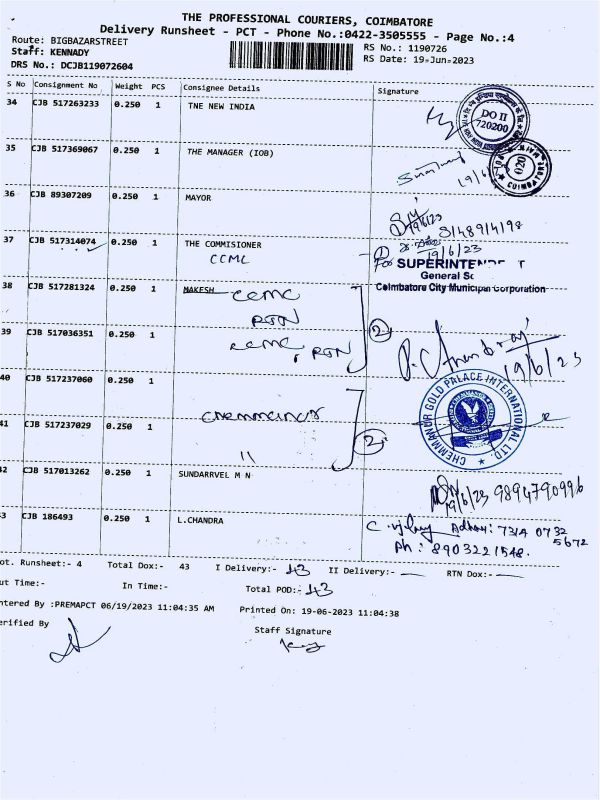 THE PROFESSIONAL COURIERS, COIMBATORE
Delivery Runsheet - PCT - Phone No.:0422-3505555 - Page No.:4
Route: BIGBAZARSTREET
RS No.: 1190726
Staff: KENNADY
RS Date: 19-Jun-2023
DRS No.: DCJB119072604
S No Consignment No Weight PCS Consignee Details Signature
34 CJB 517263233 0.250 1 TNE NEW INDIA
DO II
720200
35 CJB 517369067 0.250 1 THE MANAGER (IOB)
19/6
020
COIMBATORE
36 CJB 89307209 0.250 1 MAYOR
19/6/23
37 CJB 517314074 0.250 1 THE COMMISIONER
CCMC
19/6/23
For SUPERINTENDE T
General
Coimbatore City Municipal Corporation
38 CJB 517281324 0.250 1 MAKESH CCMC
RTN
39 CJB 517036351 0.250 1 CCMC, RTN
2
19/6/23
40 CJB 517237060 0.250 1
chemmanur
CHEMMANUR GOLD PALACE INTERNATIONAL LTD.
41 CJB 517237029 0.250 1
"
2
42 CJB 517013262 0.250 1 SUNDARRVEL M N
19/6/23 9894790996
43 CJB 186493 0.250 1 L.CHANDRA
C. vijay Adhar: 7314 0732
5672
Ph: 8903221548.
ot. Runsheet:- 4 Total Dox:- 43 I Delivery:- 43 II Delivery:- — RTN Dox:- —
ut Time:- In Time:- Total POD:- 43
ntered By :PREMAPCT 06/19/2023 11:04:35 AM Printed On: 19-06-2023 11:04:38
erified By
Staff Signature